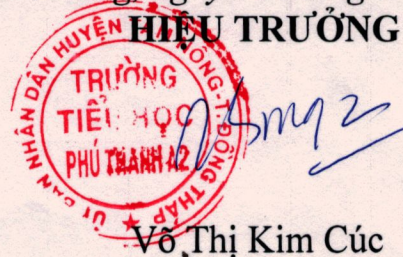 HIỆU TRƯỞNG
ỦY BAN NHÂN DÂN HUYỆN TAM NÔNG-T.ĐỒNG THÁP
TRƯỜNG
TIỂU HỌC
PHÚ THÀNH A2
Võ Thị Kim Cúc